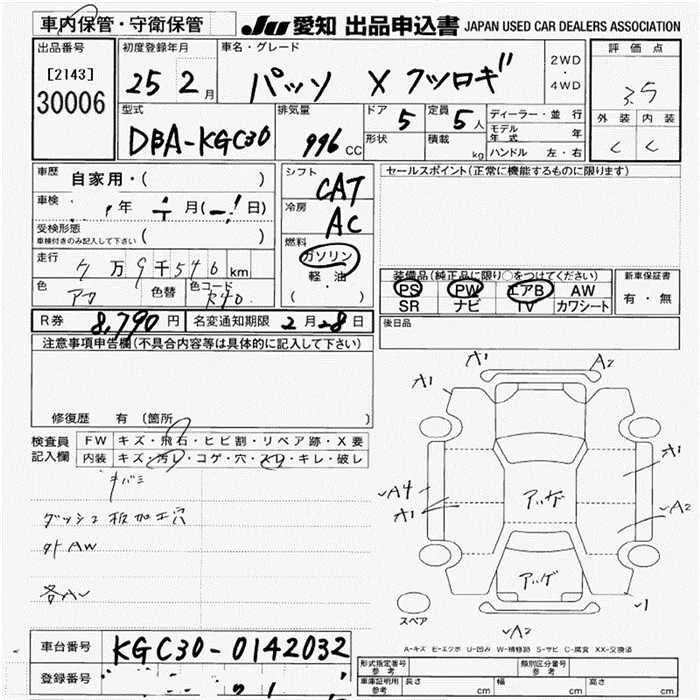 車内保管・守衛保管 JU 愛知 出品申込書 JAPAN USED CAR DEALERS ASSOCIATION
出品番号 [2143] 30006
初度登録年月 25 2月
車名・グレード パッソ X クツロギ
2WD・4WD
評価点 3.5
外装 内装
型式 DBA-KGC30
排気量 996 CC
ドア 5 定員 5人
形状 積載 kg
ディーラー・並行
モデル年式 年
ハンドル 左・右
車歴 自家用・( )
車検 年 月( 日)
受検形態 車検付きのみ記入して下さい ( )
走行 7万9千546km
色 色替 色コード R40
R券 8,790円 名変通知期限 2月28日
シフト CAT
冷房 AC
燃料 ガソリン
軽油
( )
セールスポイント(正常に機能するものに限ります)
装備品(純正品に限り○をつけてください)
PS PW エアB AW
SR ナビ TV カワシート
新車保証書 有・無
後日品
注意事項申告欄(不具合内容等は具体的に記入して下さい)
修復歴 有 (箇所
検査員記入欄
FW キズ・飛石・ヒビ割・リペア跡・X要
内装 キズ・汚レ・コゲ・穴・スレ・キレ・破レ
キバミ
ダッシュ板加工穴
外AW
A1 A2
A1
A1
A4
A1
A2
アッゲ
アッゲ
1
A2
スペア
A-キズ E-エクボ U-凹み W-補修跡 S-サビ C-腐食 XX-交換済
車台番号 KGC30-0142032
登録番号
形式指定番号 参考 類別区分番号 参考
車庫証明用 参考 長さ cm 幅 cm 高さ cm